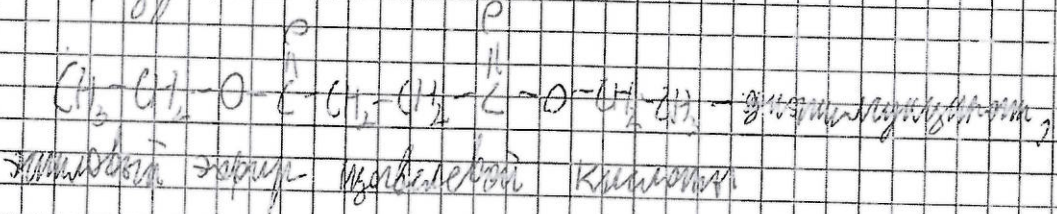 O O
CH₃-CH₂-O-C-CH₂-CH₂-C-O-CH₂-CH₃ - диэтилсукцинат,
этиловый эфир щавелевой кислоты